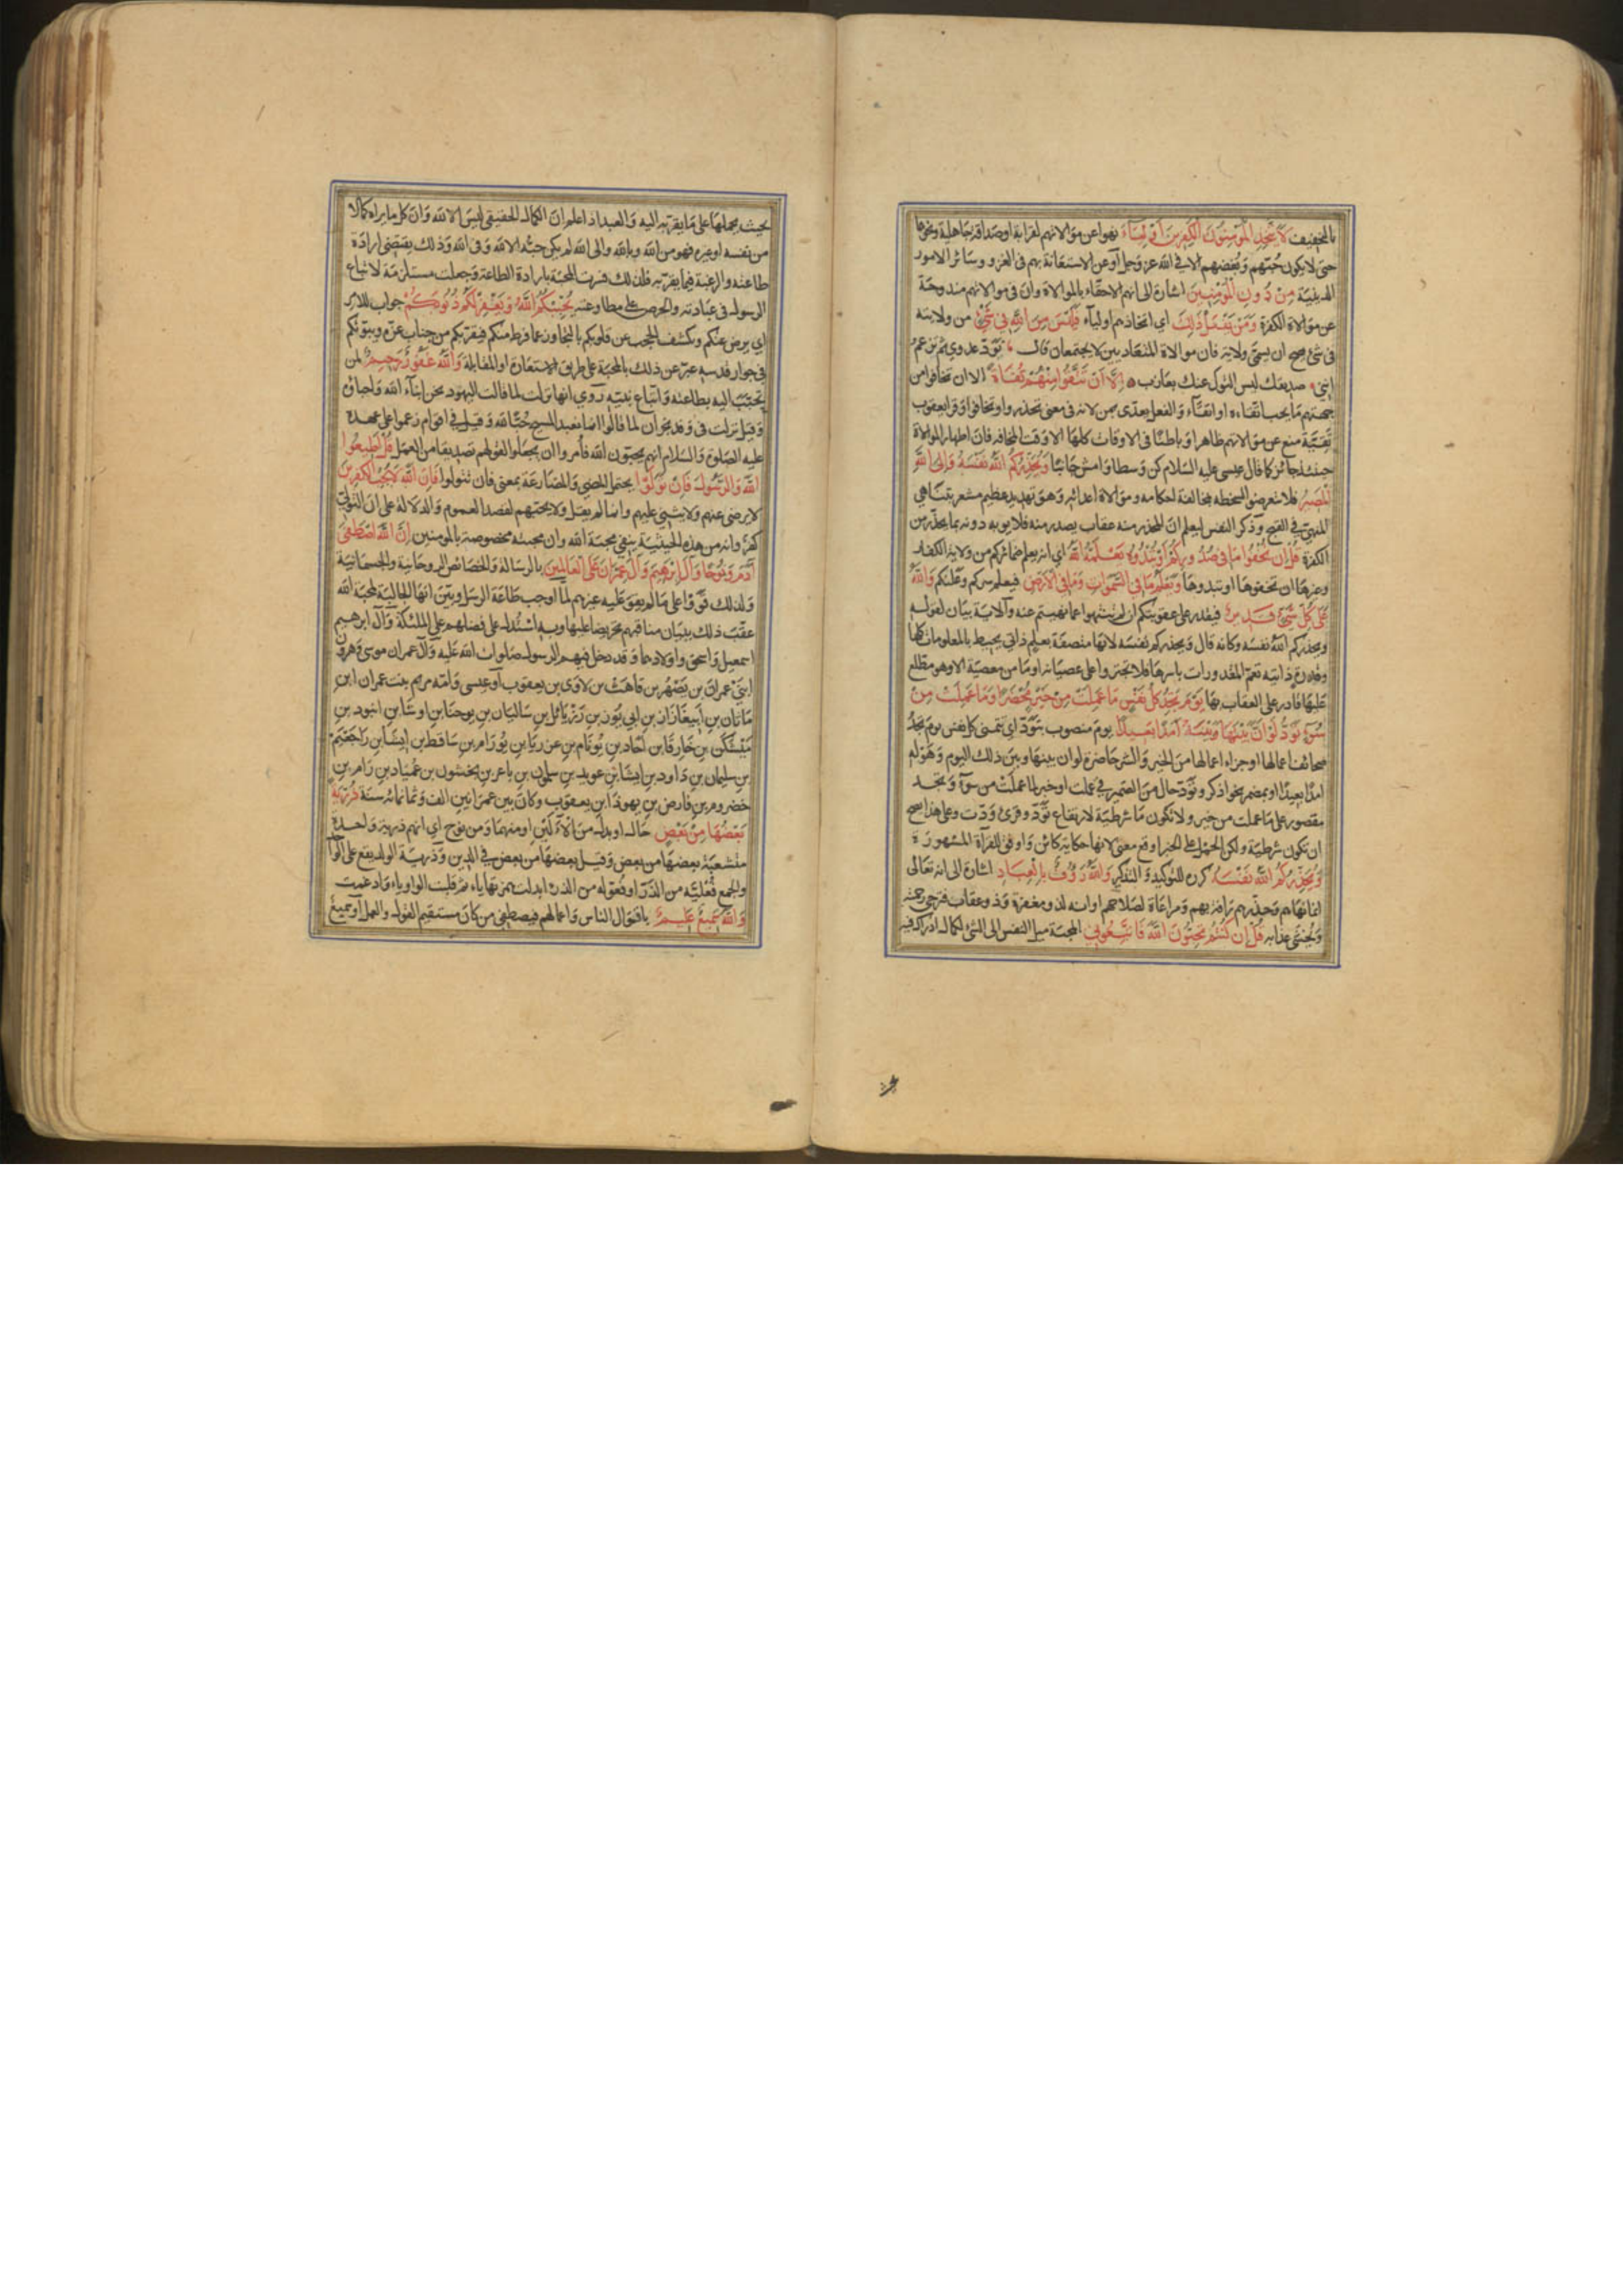 بالتخفيف لا يتخذ المؤمنون الكفرين اوليآء نهوا عن موالاتهم لقرابة او صداقة جاهلية ونحوها
حتى لا يكون حبّهم وبغضهم الا في الله عز وجل او عن الاستعانة بهم في الغزو وسائر الامور
الدينية من دون المؤمنين اشارة الى انهم الاحقّاء بالموالاة وان في موالاتهم مندوحة
عن موالاة الكفرة ومن يفعل ذلك اي اتخاذهم اوليآء فليس من الله في شيء من ولايته
في شئ يصح ان يسمّى ولاية فان موالاة المتعاديين لا يجتمعان قال تودّ عدوي ثم تزعم
انني صديقك ليس النوك عنك بعازب الّا ان تتقوا منهم تقاة الا ان تخافوا من
جهتهم ما يجب اتقاءه او اتقآء والفعل يعدّى بمن لانه في معنى تحذروا وتخافوا وقرأ يعقوب
تقيّة منع عن موالاتهم ظاهرا وباطنا في الاوقات كلها الا وقت المخافه فان اظهار الموالاة
حينئذ جائز كما قال عيسى عليه السلام كن وسطا وامش جانبا ويحذركم الله نفسه والى الله
المصير فلا تتعرضوا لسخطه بمخالفة احكامه وموالاة اعدائه وهو تهديد عظيم مشعر بتناهي
المنهيّ في القبح وذكر النفس ليعلم ان المحذر منه عقاب يصدر منه فلا يوبه دونه بما يحذّر من
الكفرة قل ان تخفوا ما في صدوركم او تبدوه يعلمه الله اي انه يعلم ضمائركم من ولاية الكفار
وغيرها ان تخفوها او تبدوها ويعلم ما في السموات وما في الارض فيعلم سركم وعلنكم والله
على كل شئ قدير فيقدر على عقوبتكم ان لم تنتهوا عما نهيتم عنه والآية بيان لقوله
ويحذركم الله نفسه وكانه قال ويحذركم نفسه لانها متصفة بعلم ذاتي يحيط بالمعلومات كلها
وقدرة ذاتية تعم المقدورات باسرها فلا تجسروا على عصيانه اذ ما من معصية الا وهو مطلع
عليها قادر على العقاب بها يوم تجد كل نفس ما عملت من خير محضرا وما عملت من
سوء تودّ لو ان بينها وبينه امدا بعيدا يوم منصوب بتودّ اي تتمنى كل نفس يوم تجد
صحائف اعمالها او جزاء اعمالها من الخير والشر حاضرة لو ان بينها وبين ذلك اليوم وهوله
امدا بعيدا او بمضمر نحو اذكر وتودّ حال من الضمير في عملت او خبر لما عملت من سوآء وتجد
مقصور على ما عملت من خير ولا تكون ما شرطية لارتفاع تودّ وقرئ ودّت وعلى هذا يصح
ان تكون شرطية ولكن الحمل على الخبر اوقع معنى لانها حكاية كائن واوفق للقرآة المشهورة
ويحذركم الله نفسه كرره للتوكيد والتذكير والله رؤف بالعباد اشارة الى انه تعالى
انما نهاهم وحذرهم رأفة بهم ومراعاة لصلاحهم او انه لذو مغفرة وذو عقاب فترجى رحمته
ويخشى عذابه قل ان كنتم تحبون الله فاتبعوني المحبة ميل النفس الى الشئ لكمال ادراك فيه
بحيث يحملها على ما يقربه اليه والعبد اذا علم ان الكمال الحقيقي ليس الا لله وان كل ما يراه كمالا
من نفسه او غيره فهو من الله وبالله والى الله لم يكن حبّه الا لله وفي الله وذلك يقتضي ارادة
طاعته والرغبة فيما يقربه فلذلك فسرت المحبة بارادة الطاعة وجعلت مستلزمة لاتباع
الرسول في عبادته والحرص على مطاوعته يحببكم الله ويغفر لكم ذنوبكم جواب للامر
اي يرض عنكم ويكشف الحجب عن قلوبكم بالتجاوز عما فرط منكم فيقربكم من جناب عزه ويبوّئكم
في جوار قدسه عبّر عن ذلك بالمحبة على طريق الاستعارة او المقابلة والله غفور رحيم لمن
تحبّب اليه بطاعته واتباع نبيّه روي انها نزلت لما قالت اليهود نحن ابنآء الله واحباؤه
وقيل نزلت في وفد نجران لما قالوا انما نعبد المسيح حبّا لله وقيل في اقوام زعموا على عهده
عليه الصلوة والسلام انهم يحبّون الله فأمروا ان يجعلوا لقولهم تصديقا من العمل قل اطيعوا
الله والرسول فان تولّوا يحتمل المضي والمضارعة بمعنى فان تتولوا فان الله لا يحب الكفرين
لا يرضى عنهم ولا يثني عليهم وانما لم يقل ولا يحبهم لقصد العموم والدلالة على ان التولّي
كفر وانه من هذه الحيثية ينفي محبة الله وان محبته مخصوصة بالمومنين ان الله اصطفى
آدم ونوحا وآل ابرهيم وآل عمران على العالمين بالرسالة والخصائص الروحانية والجسمانية
ولذلك قووا على ما لم يقو عليه غيرهم لما اوجب طاعة الرسل وبيّن انها الجالبة لمحبة الله
عقّب ذلك ببيان مناقبهم تحريضا عليها وبه استدل على فضلهم على الملئكة وآل ابرهيم
اسمعيل واسحق واولادهما وقد دخل فيهم الرسول صلوات الله عليه وآل عمران موسى وهرون
ابني عمران بن يصهر بن قاهث بن لاوى بن يعقوب او عيسى وامه مريم بنت عمران ابن
ماثان بن ابيعازاز بن ابي يوذ بن زربائل بن ساليان بن يوحنا بن اوشا بن امود بن
ميشكن بن خارقا بن احاد بن يوثام بن عزريا بن يورام بن ساقط بن ايشا بن راجعيم
بن سليمان بن داود بن ايشا بن عويد بن سلمون بن باعر بن نحشون بن عمياد بن رام بن
حضروم بن فارض بن يهوذا بن يعقوب وكان بين عمرانين الف وثمانمائة سنة ذرية
بعضها من بعض حال او بدل من الآلين او منهما ومن نوح اي انهم ذرية واحدة
متشعبة بعضها من بعض وقيل بعضها من بعض في الدين وذرية الولد يقع على الواحد
والجمع فعلية من الذرّ او فعولة من الذرء ابدلت همزتها ياء ثم قلبت الواو ياء وادغمت
والله سميع عليم باقوال الناس واعمالهم فيصطفي من كان مستقيم القول والعمل او سميع